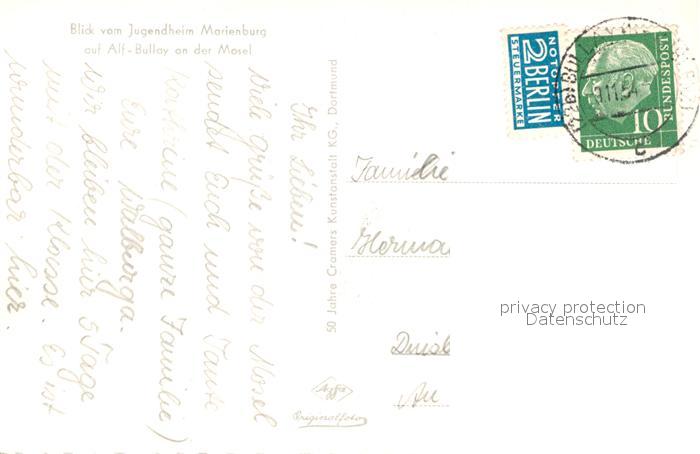 Blick vom Jugendheim Marienburg
auf Alf-Bullay an der Mosel
Ihr Lieben!
Viele Grüße von der Mosel
sendet Euch und Tante
Kathrene (ganze Familie)
Eure Walburga.
Wir bleiben hier 5 Tage
mit der Klasse. Es ist
wunderbar hier.
50 Jahre Cramers Kunstanstalt KG., Dortmund
Agfa
Originalfoto
NOTOPFER
2 BERLIN
STEUERMARKE
BULLAY
.11.54
c
10
DEUTSCHE
BUNDESPOST
Familie
Herma
Duisb
An
privacy protection
Datenschutz